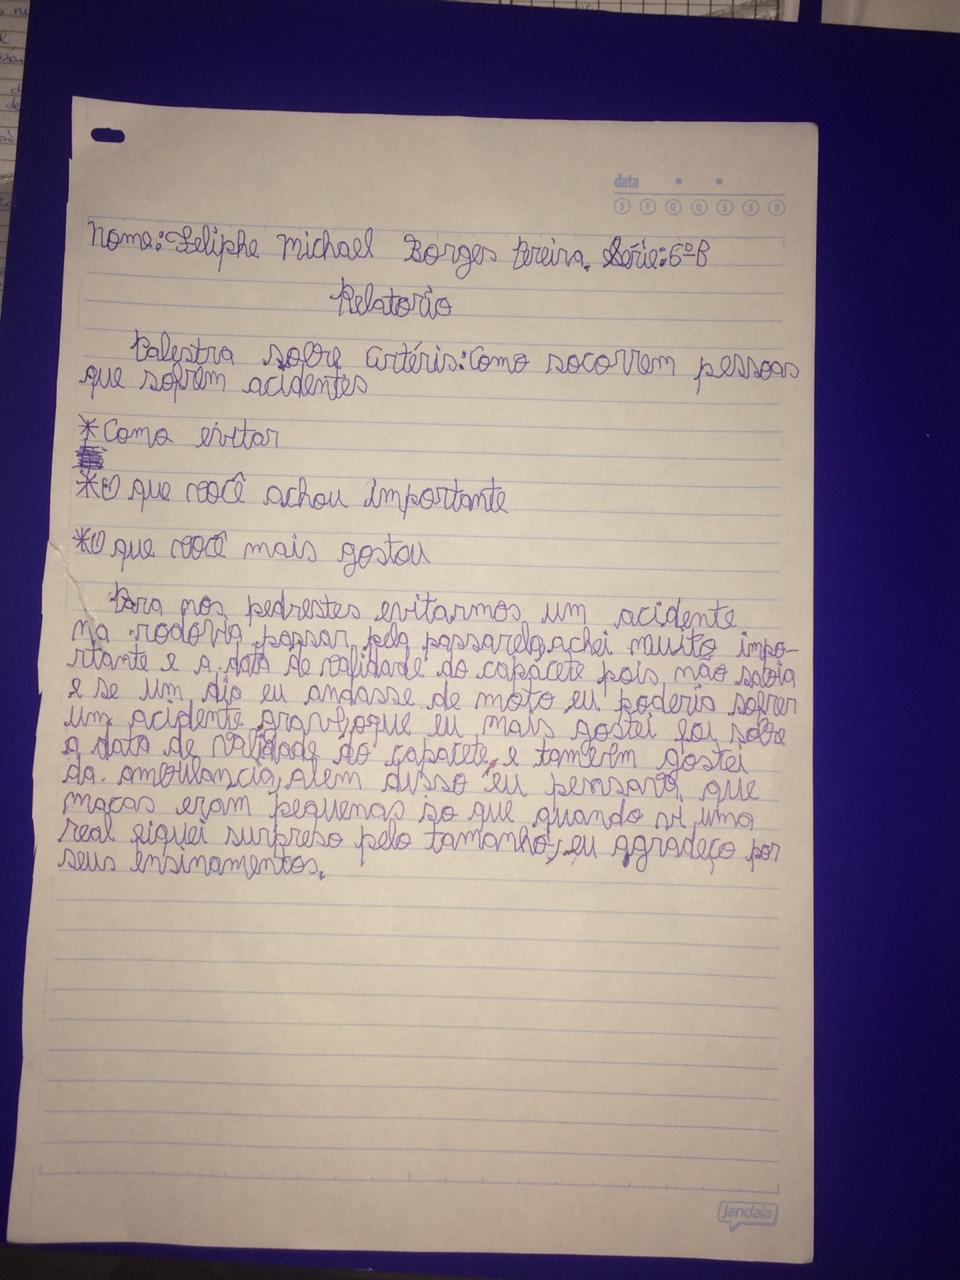 data
S T Q Q S S D
Nome: Feliphe Michael Borges Pereira. Série: 6ºB
Relatorio
Palestra sobre Artéris: Como socorrem pessoas
que sofrem acidentes
*Como evitar
*O que você achou importante
*O que você mais gostou
Para nos pedrestes evitarmos um acidente
na rodovia passar pela passarela, achei muito impo-
rtante e a data de validade do capacete pois não sabia
e se um dia eu andasse de moto eu poderia sofrer
um acidente grave, oque eu mais gostei foi sobre
a data de validade do capacete, e tambem gostei
da ambulancia, alem disso eu pensava que
macas eram pequenas so que quando vi uma
real fiquei surpreso pelo tamanho, eu agradeço por
seus ensinamentos.
jandaia